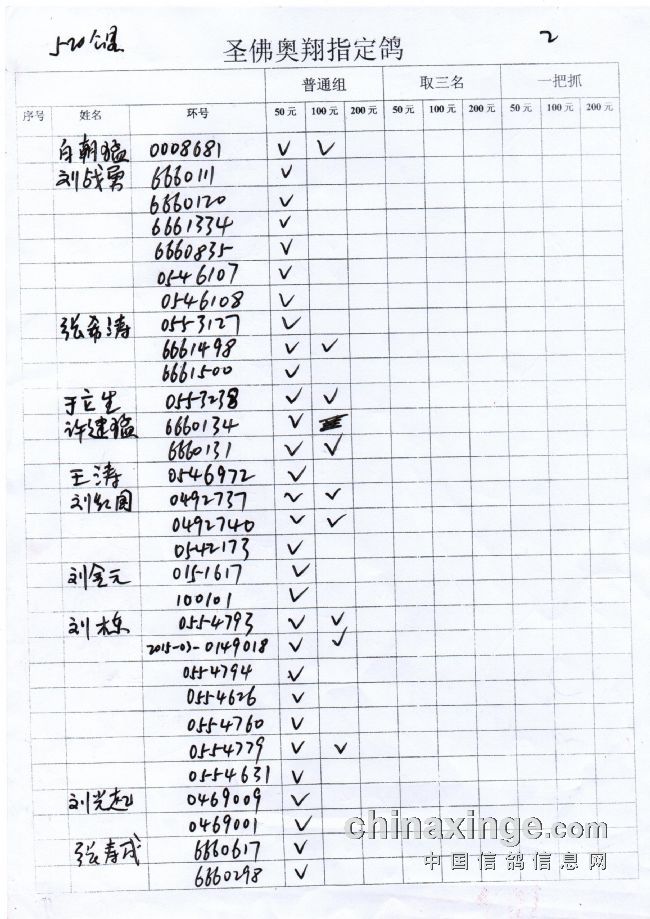 520公里 圣佛奥翔指定鸽 2
普通组 取三名 一把抓
序号 姓名 环号 50元 100元 200元 50元 100元 200元 50元 100元 200元
白朝猛 0008681 ✓ ✓
刘战勇 6660111 ✓
6660120 ✓
6661334 ✓
6660835 ✓
0546107 ✓
0546108 ✓
张希涛 0553127 ✓
6661498 ✓ ✓
6661500 ✓
于立生 0553238 ✓ ✓
许建猛 6660134 ✓
6660131 ✓ ✓
王涛 0546972 ✓
刘红国 0492737 ✓ ✓
0492740 ✓ ✓
0542173 ✓
刘金元 0151617 ✓
100101 ✓
刘栋 0554793 ✓ ✓
2015-03-0149018 ✓ ✓
0554794 ✓
0554626 ✓
0554760 ✓
0554779 ✓ ✓
0554631 ✓
刘光超 0469009 ✓
0469001 ✓
张寿成 6660617 ✓
6660298 ✓
chinaxinge.com
中国信鸽信息网